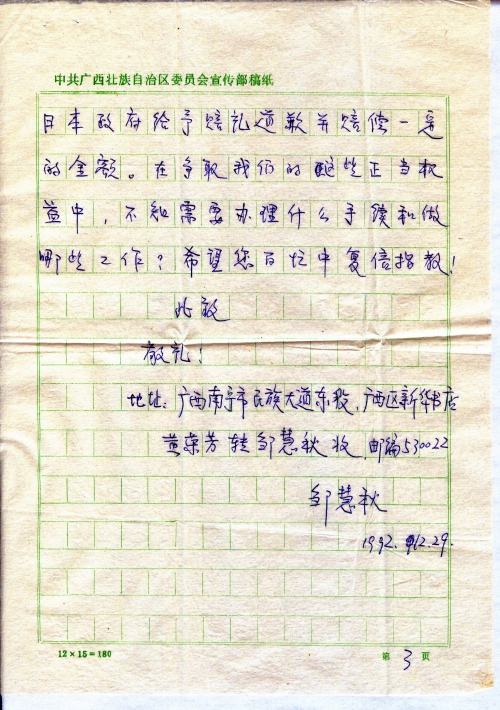 中共广西壮族自治区委员会宣传部稿纸
日本政府给予赔礼道歉并赔偿一定
的金额。在争取我们的这些正当权
益中，不知需要办理什么手续和做
哪些工作？希望您百忙中复信指教！
此致
敬礼！
地址：广西南宁市民族大道东段，广西区新华书店
黄荣芳转邹慧秋收，邮编530022
邹慧秋
1992.12.29.
12×15=180
第3页